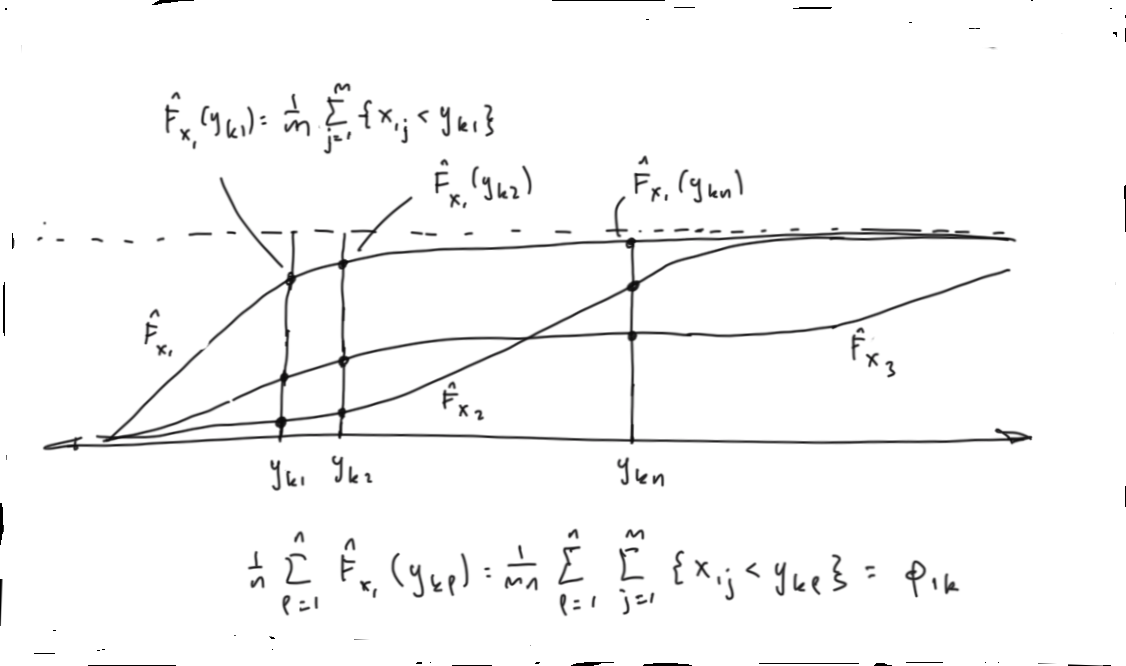 F̂ₓ₁(yₖ₁) = 1/m Σⱼ₌₁ᵐ {x₁ⱼ < yₖ₁}
F̂ₓ₁(yₖ₂)
F̂ₓ₁(yₖₙ)
F̂ₓ₁
F̂ₓ₂
F̂ₓ₃
yₖ₁ yₖ₂ yₖₙ
1/n Σ_{ℓ=1}^{n} F̂ₓ₁(y_{kℓ}) = 1/mn Σ_{ℓ=1}^{n} Σ_{j=1}^{m} {x₁ⱼ < y_{kℓ}} = φ₁ₖ